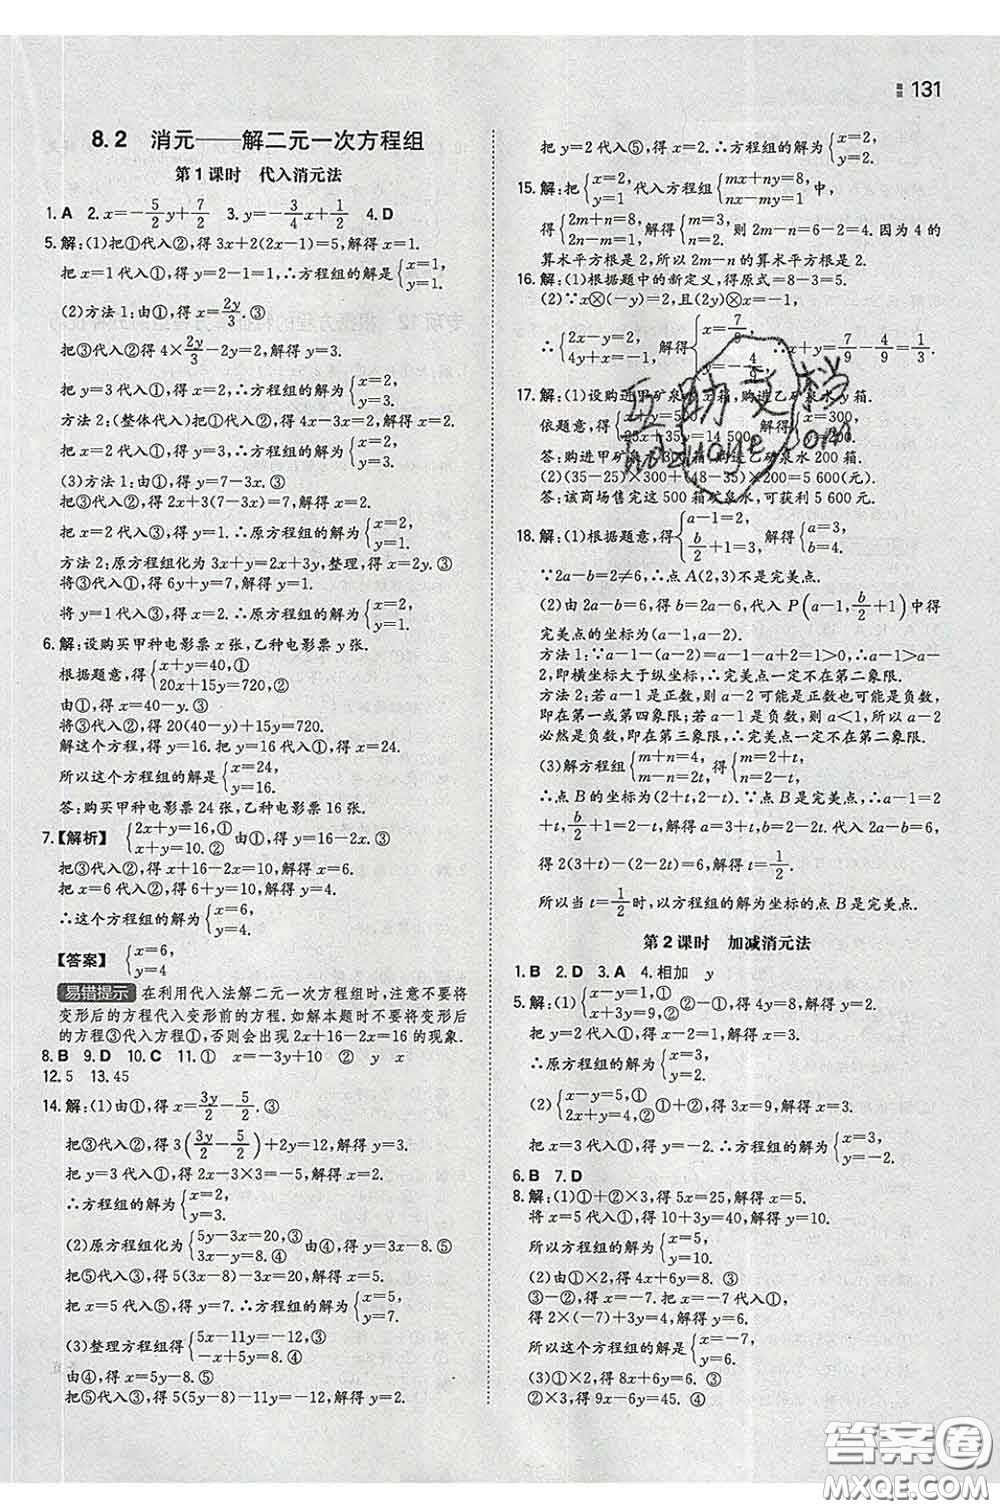 答案 131
8.2 消元——解二元一次方程组
第1课时 代入消元法
1.A 2.x=-5/2y+7/2 3.y=-3/4x+1/2 4.D
5.解:(1)把①代入②,得3x+2(2x-1)=5,解得x=1.
把x=1代入①,得y=2-1=1,∴方程组的解是{x=1, y=1.
(2)方法1:由①,得x=2y/3.③
把③代入②,得4×2y/3-2y=2,解得y=3.
把y=3代入③,得x=2,∴原方程组的解为{x=2, y=3.
方法2:(整体代入)
(3)方法1:由①,得y=7-3x.③
把③代入②,得2x+3(7-3x)=7,解得x=2.
把x=2代入③,得y=1.∴原方程组的解为{x=2, y=1.
方法2:原方程组化为3x+y=2x+3y,整理,得x=2y.③
将③代入①,得6y+y=7,解得y=1.
将y=1代入③,得x=2.∴原方程组的解为{x=2, y=1.
6.解:设购买甲种电影票x张,乙种电影票y张.
根据题意,得{x+y=40,① 20x+15y=720,②
由①,得x=40-y.③
把③代入②,得20(40-y)+15y=720.
解这个方程,得y=16.把y=16代入③,得x=24.
所以这个方程组的解是{x=24, y=16.
答:购买甲种电影票24张,乙种电影票16张.
7.【解析】{2x+y=16,① x+y=10.② 由①,得y=16-2x.③
把③代入②,得x+16-2x=10,解得x=6.
把x=6代入②,得6+y=10,解得y=4.
∴这个方程组的解为{x=6, y=4.
【答案】{x=6, y=4
易错提示 在利用代入法解二元一次方程组时,注意不要将
变形后的方程代入变形前的方程.如解本题时不要将变形后
的方程③代入方程①,否则会出现2x+16-2x=16的现象.
8.B 9.D 10.C 11.① x=-3y+10 ② y x
12.5 13.45
14.解:(1)由①,得x=3y/2-5/2.③
把③代入②,得3(3y/2-5/2)+2y=12,解得y=3.
把y=3代入①,得2x-3×3=-5,解得x=2.
∴方程组的解为{x=2, y=3.
(2)原方程组化为{5y-3x=20,③ 3y-x=8.④ 由④,得x=3y-8.⑤
把⑤代入③,得5(3x-8)-x=20,解得x=5.
把x=5代入⑤,得y=7.∴方程组的解为{x=5, y=7.
(3)整理方程组,得{5x-11y=-12,③ -x+5y=8.④
由④,得x=5y-8.⑤
把⑤代入③,得5(5y-8)-11y=-12,解得y=2.
把y=2代入⑤,得x=2.∴方程组的解为{x=2, y=2.
15.解:把{x=2, y=1代入方程组{mx+ny=8, nx-my=1中,
得{2m+n=8, 2n-m=1.解得{m=3, n=2.则2m-n=6-2=4.因为4的
算术平方根是2,所以2m-n的算术平方根是2.
16.解:(1)根据题中的新定义,得原式=8-3=5.
(2)∵x⊗(-y)=2,且(2y)⊗x=-1,
∴{2x-y=2, 4y+x=-1,解得{x=7/9, y=-4/9.∴x+y=7/9-4/9=1/3.
17.解:(1)设购进甲矿泉水x箱,购进乙矿泉水y箱.
依题意,得{x+y=500, 25x+35y=14 500,解得{x=300, y=200.
答:购进甲矿泉水300箱,购进乙矿泉水200箱.
(2)(35-25)×300+(48-35)×200=5 600(元).
答:该商场售完这500箱矿泉水,可获利5 600元.
18.解:(1)根据题意,得{a-1=2, b/2+1=3,解得{a=3, b=4.
∵2a-b=2≠6,∴点A(2,3)不是完美点.
(2)由2a-b=6,得b=2a-6,代入P(a-1,b/2+1)中得
完美点的坐标为(a-1,a-2).
方法1:∵a-1-(a-2)=a-1-a+2=1>0,∴a-1>a-2,
即横坐标大于纵坐标,∴完美点一定不在第二象限.
方法2:若a-1是正数,则a-2可能是正数也可能是负数,
即在第一或第四象限;若a-1是负数,则a<1,所以a-2
必然是负数,即在第三象限,∴完美点一定不在第二象限.
(3)解方程组{m+n=4, m-n=2t,得{m=2+t, n=2-t,
∴点B的坐标为(2+t,2-t).∵点B是完美点,∴a-1=2
+t,b/2+1=2-t,解得a=3+t,b=2-2t.代入2a-b=6,
得2(3+t)-(2-2t)=6,解得t=1/2.
所以当t=1/2时,以方程组的解为坐标的点B是完美点.
第2课时 加减消元法
1.B 2.D 3.A 4.相加 y
5.解:(1){x-y=1,① x+3y=9,②由②-①,得4y=8,解得y=2.
把y=2代入①,得x-2=1,解得x=3.
∴原方程组的解为{x=3, y=2.
(2){x-y=5,① 2x+y=4.②①+②,得3x=9,解得x=3.
把x=3代入①,得y=-2.∴方程组的解为{x=3, y=-2.
6.B 7.D
8.解:(1)①+②×3,得5x=25,解得x=5.
将x=5代入①,得10+3y=40,解得y=10.
所以方程组的解为{x=5, y=10.
(2)由①×2,得4x+6y=8.③
③-②,得x=-7.把x=-7代入①,
得2×(-7)+3y=4,解得y=6.
所以这个方程组的解为{x=-7, y=6.
(3)①×2,得8x+6y=6.③
②×3,得9x-6y=45.④
互助文档
hdzuoye.com
答案圈
MXQE.COM